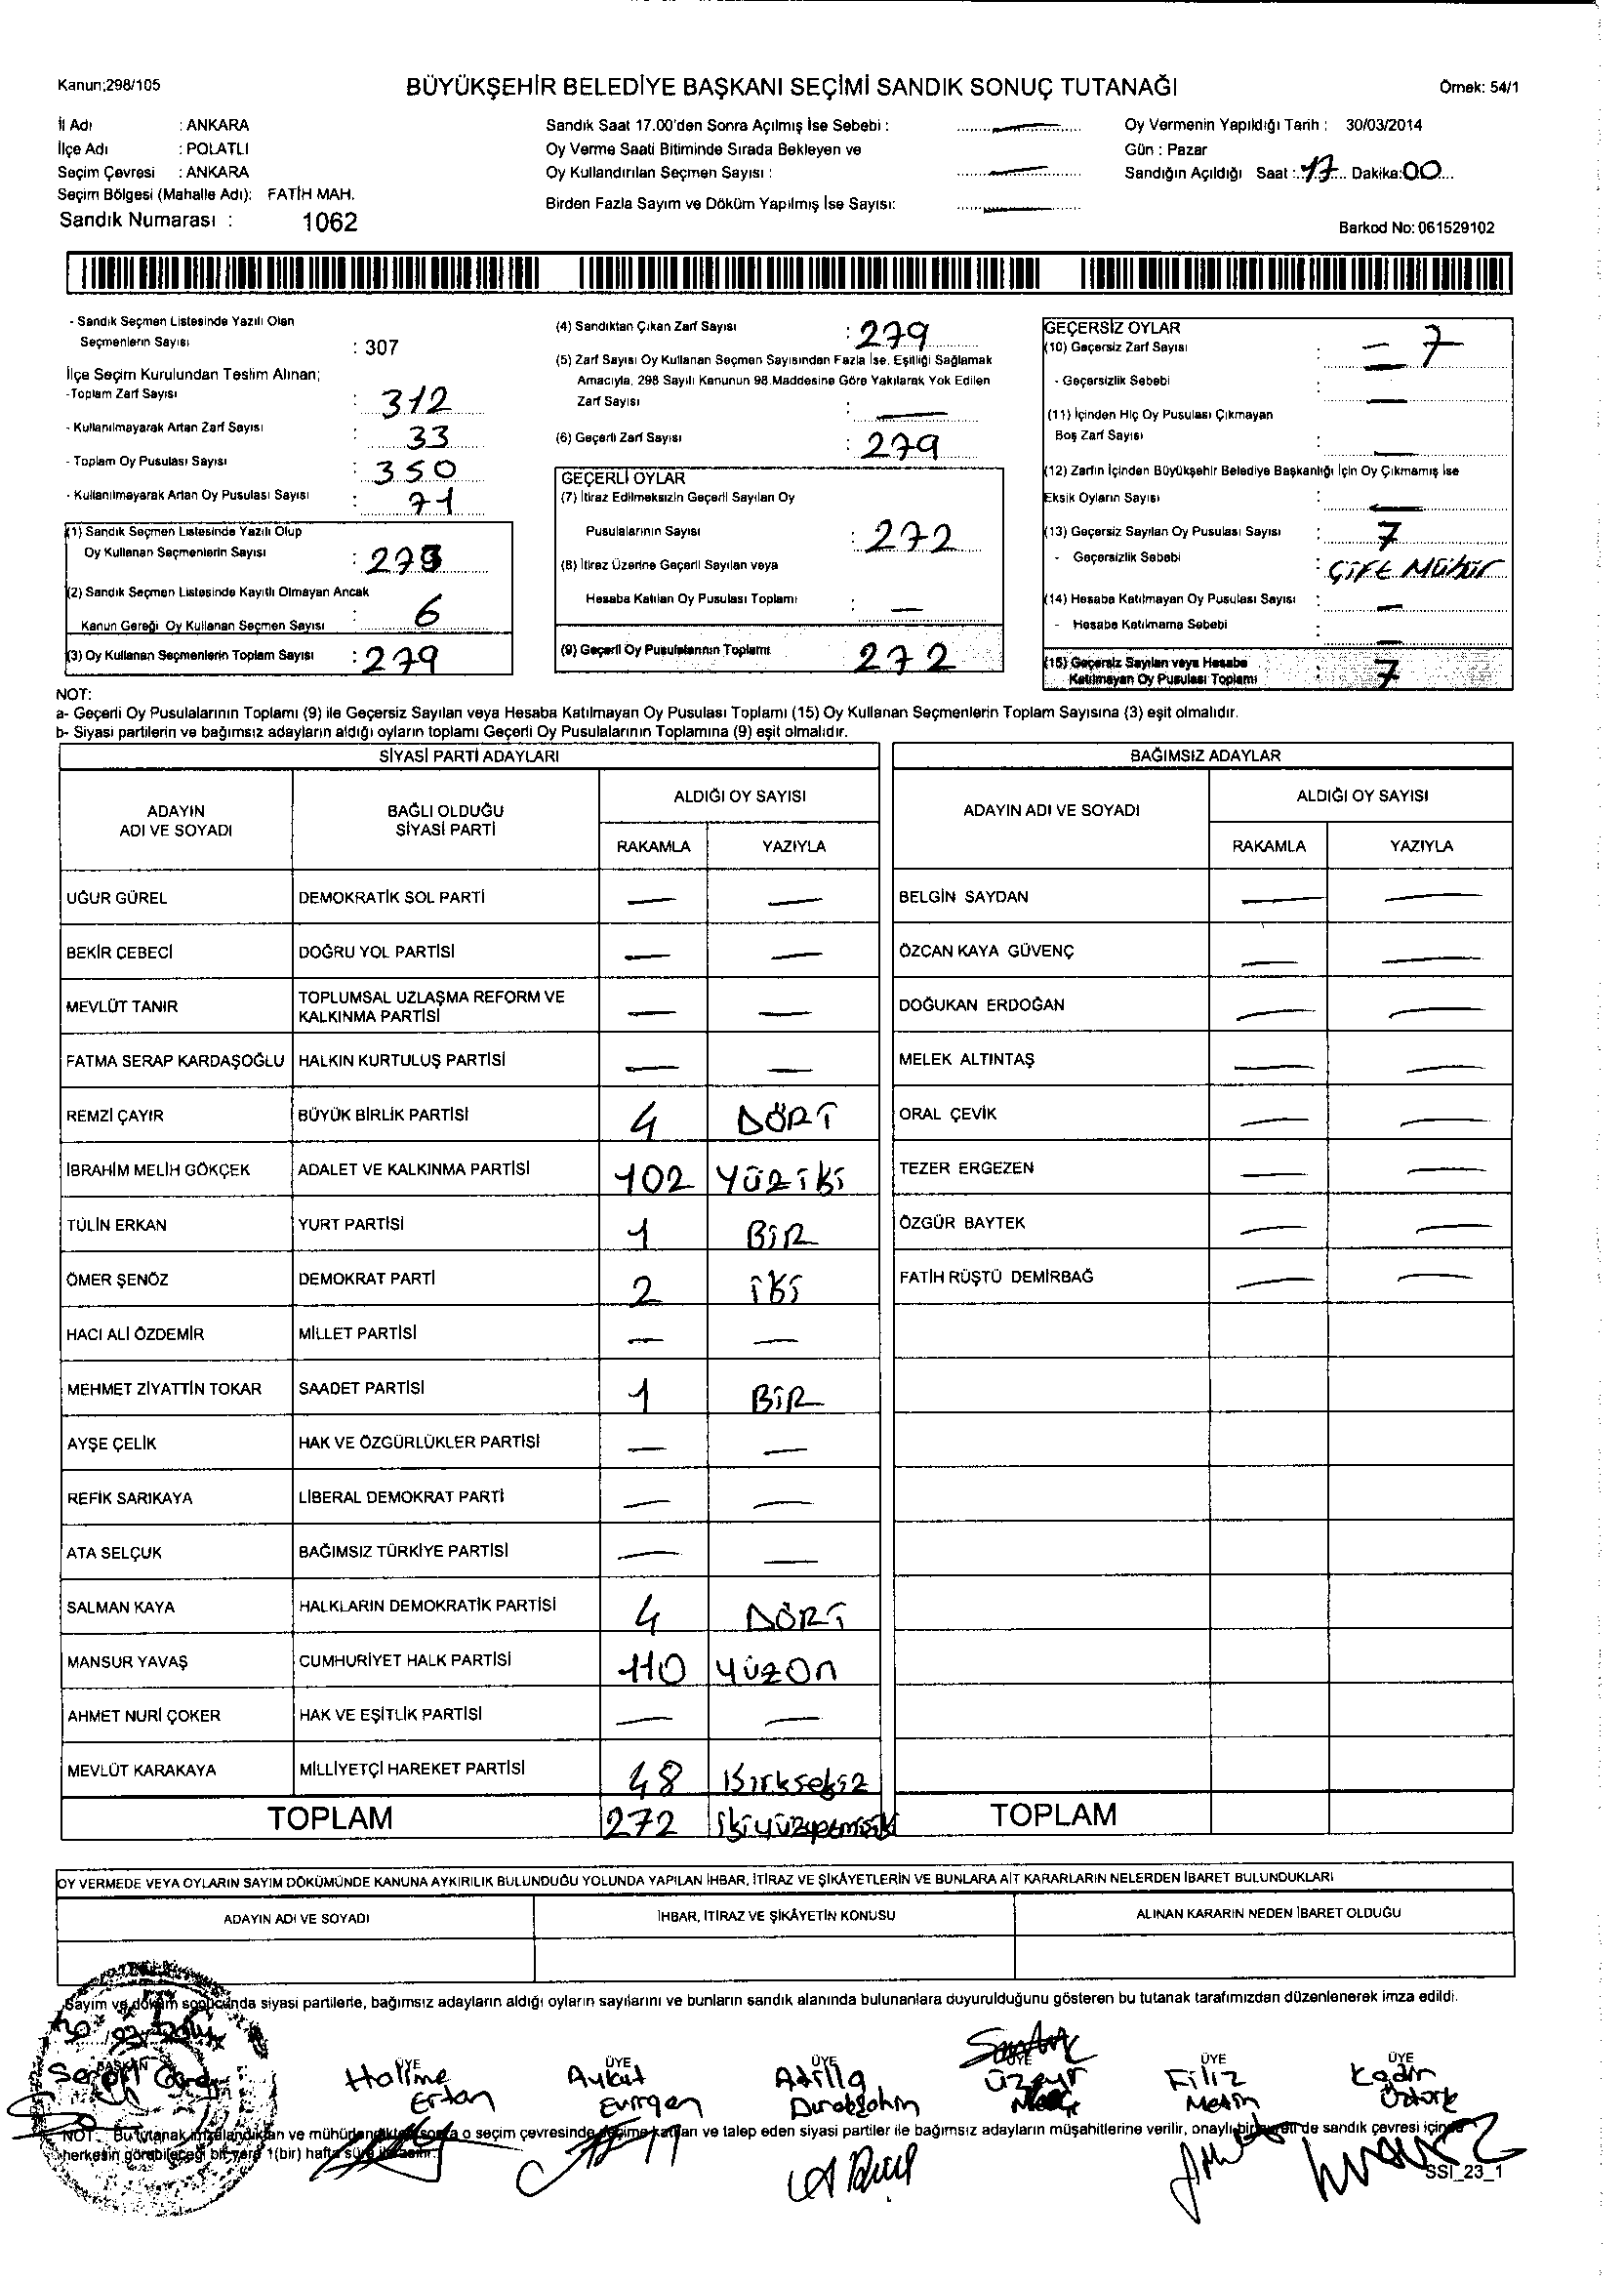 Kanun;298/105
BÜYÜKŞEHİR BELEDİYE BAŞKANI SEÇİMİ SANDIK SONUÇ TUTANAĞI
Örnek: 54/1
İl Adı : ANKARA
İlçe Adı : POLATLI
Seçim Çevresi : ANKARA
Seçim Bölgesi (Mahalle Adı): FATİH MAH.
Sandık Numarası : 1062
Sandık Saat 17.00'den Sonra Açılmış İse Sebebi :
Oy Verme Saati Bitiminde Sırada Bekleyen ve
Oy Kullandırılan Seçmen Sayısı :
Birden Fazla Sayım ve Döküm Yapılmış İse Sayısı:
Oy Vermenin Yapıldığı Tarih : 30/03/2014
Gün : Pazar
Sandığın Açıldığı Saat : 17 Dakika: 00
Barkod No: 061529102
- Sandık Seçmen Listesinde Yazılı Olan
Seçmenlerin Sayısı : 307
İlçe Seçim Kurulundan Teslim Alınan;
-Toplam Zarf Sayısı : 312
- Kullanılmayarak Artan Zarf Sayısı : 33
- Toplam Oy Pusulası Sayısı : 350
- Kullanılmayarak Artan Oy Pusulası Sayısı : 71
(1) Sandık Seçmen Listesinde Yazılı Olup
Oy Kullanan Seçmenlerin Sayısı : 273
(2) Sandık Seçmen Listesinde Kayıtlı Olmayan Ancak
Kanun Gereği Oy Kullanan Seçmen Sayısı : 6
(3) Oy Kullanan Seçmenlerin Toplam Sayısı : 279
(4) Sandıktan Çıkan Zarf Sayısı : 279
(5) Zarf Sayısı Oy Kullanan Seçmen Sayısından Fazla İse, Eşitliği Sağlamak
Amacıyla, 298 Sayılı Kanunun 98.Maddesine Göre Yakılarak Yok Edilen
Zarf Sayısı : —
(6) Geçerli Zarf Sayısı : 279
GEÇERLİ OYLAR
(7) İtiraz Edilmeksizin Geçerli Sayılan Oy
Pusulalarının Sayısı : 272
(8) İtiraz Üzerine Geçerli Sayılan veya
Hesaba Katılan Oy Pusulası Toplamı : —
(9) Geçerli Oy Pusulalarının Toplamı 272
GEÇERSİZ OYLAR
(10) Geçersiz Zarf Sayısı : — 7
- Geçersizlik Sebebi : —
(11) İçinden Hiç Oy Pusulası Çıkmayan
Boş Zarf Sayısı : —
(12) Zarfın İçinden Büyükşehir Belediye Başkanlığı İçin Oy Çıkmamış İse
Eksik Oyların Sayısı : —
(13) Geçersiz Sayılan Oy Pusulası Sayısı : 7
- Geçersizlik Sebebi : Çift Mühür
(14) Hesaba Katılmayan Oy Pusulası Sayısı : —
- Hesaba Katılmama Sebebi : —
(15) Geçersiz Sayılan veya Hesaba
Katılmayan Oy Pusulası Toplamı : 7
NOT:
a- Geçerli Oy Pusulalarının Toplamı (9) ile Geçersiz Sayılan veya Hesaba Katılmayan Oy Pusulası Toplamı (15) Oy Kullanan Seçmenlerin Toplam Sayısına (3) eşit olmalıdır.
b- Siyasi partilerin ve bağımsız adayların aldığı oyların toplamı Geçerli Oy Pusulalarının Toplamına (9) eşit olmalıdır.
SİYASİ PARTİ ADAYLARI
ADAYIN ADI VE SOYADI
BAĞLI OLDUĞU SİYASİ PARTİ
ALDIĞI OY SAYISI
RAKAMLA YAZIYLA
UĞUR GÜREL DEMOKRATİK SOL PARTİ — —
BEKİR CEBECİ DOĞRU YOL PARTİSİ — —
MEVLÜT TANIR TOPLUMSAL UZLAŞMA REFORM VE KALKINMA PARTİSİ — —
FATMA SERAP KARDAŞOĞLU HALKIN KURTULUŞ PARTİSİ — —
REMZİ ÇAYIR BÜYÜK BİRLİK PARTİSİ 4 DÖRT
İBRAHİM MELİH GÖKÇEK ADALET VE KALKINMA PARTİSİ 102 YÜZİKİ
TÜLİN ERKAN YURT PARTİSİ 1 BİR
ÖMER ŞENÖZ DEMOKRAT PARTİ 2 İKİ
HACI ALİ ÖZDEMİR MİLLET PARTİSİ — —
MEHMET ZİYATTİN TOKAR SAADET PARTİSİ 1 BİR
AYŞE ÇELİK HAK VE ÖZGÜRLÜKLER PARTİSİ — —
REFİK SARIKAYA LİBERAL DEMOKRAT PARTİ — —
ATA SELÇUK BAĞIMSIZ TÜRKİYE PARTİSİ — —
SALMAN KAYA HALKLARIN DEMOKRATİK PARTİSİ 4 DÖRT
MANSUR YAVAŞ CUMHURİYET HALK PARTİSİ 110 YÜZON
AHMET NURİ ÇOKER HAK VE EŞİTLİK PARTİSİ — —
MEVLÜT KARAKAYA MİLLİYETÇİ HAREKET PARTİSİ 48 Kırksekiz
TOPLAM 272 ikiyüzyetmişiki
BAĞIMSIZ ADAYLAR
ADAYIN ADI VE SOYADI
ALDIĞI OY SAYISI
RAKAMLA YAZIYLA
BELGİN SAYDAN — —
ÖZCAN KAYA GÜVENÇ — —
DOĞUKAN ERDOĞAN — —
MELEK ALTINTAŞ — —
ORAL ÇEVİK — —
TEZER ERGEZEN — —
ÖZGÜR BAYTEK — —
FATİH RÜŞTÜ DEMİRBAĞ — —
TOPLAM
OY VERMEDE VEYA OYLARIN SAYIM DÖKÜMÜNDE KANUNA AYKIRILIK BULUNDUĞU YOLUNDA YAPILAN İHBAR, İTİRAZ VE ŞİKÂYETLERİN VE BUNLARA AİT KARARLARIN NELERDEN İBARET BULUNDUKLARI
ADAYIN ADI VE SOYADI İHBAR, İTİRAZ VE ŞİKÂYETİN KONUSU ALINAN KARARIN NEDEN İBARET OLDUĞU
Sayım ve döküm sonucunda siyasi partilerle, bağımsız adayların aldığı oyların sayılarını ve bunların sandık alanında bulunanlara duyurulduğunu gösteren bu tutanak tarafımızdan düzenlenerek imza edildi.
BAŞKAN ÜYE ÜYE ÜYE ÜYE ÜYE ÜYE
Halime Aykut Atilla Üzeyir Filiz Kadir
Ertan Evirgen Durakşahin Metin Öztürk
NOT : Bu tutanak imzalandıktan ve mühürlendikten sonra o seçim çevresinde seçime katılan ve talep eden siyasi partiler ile bağımsız adayların müşahitlerine verilir, onaylı bir sureti de sandık çevresi içinde
herkesin görebileceği bir yere 1(bir) hafta süre ile asılır.
SSİ_23_1